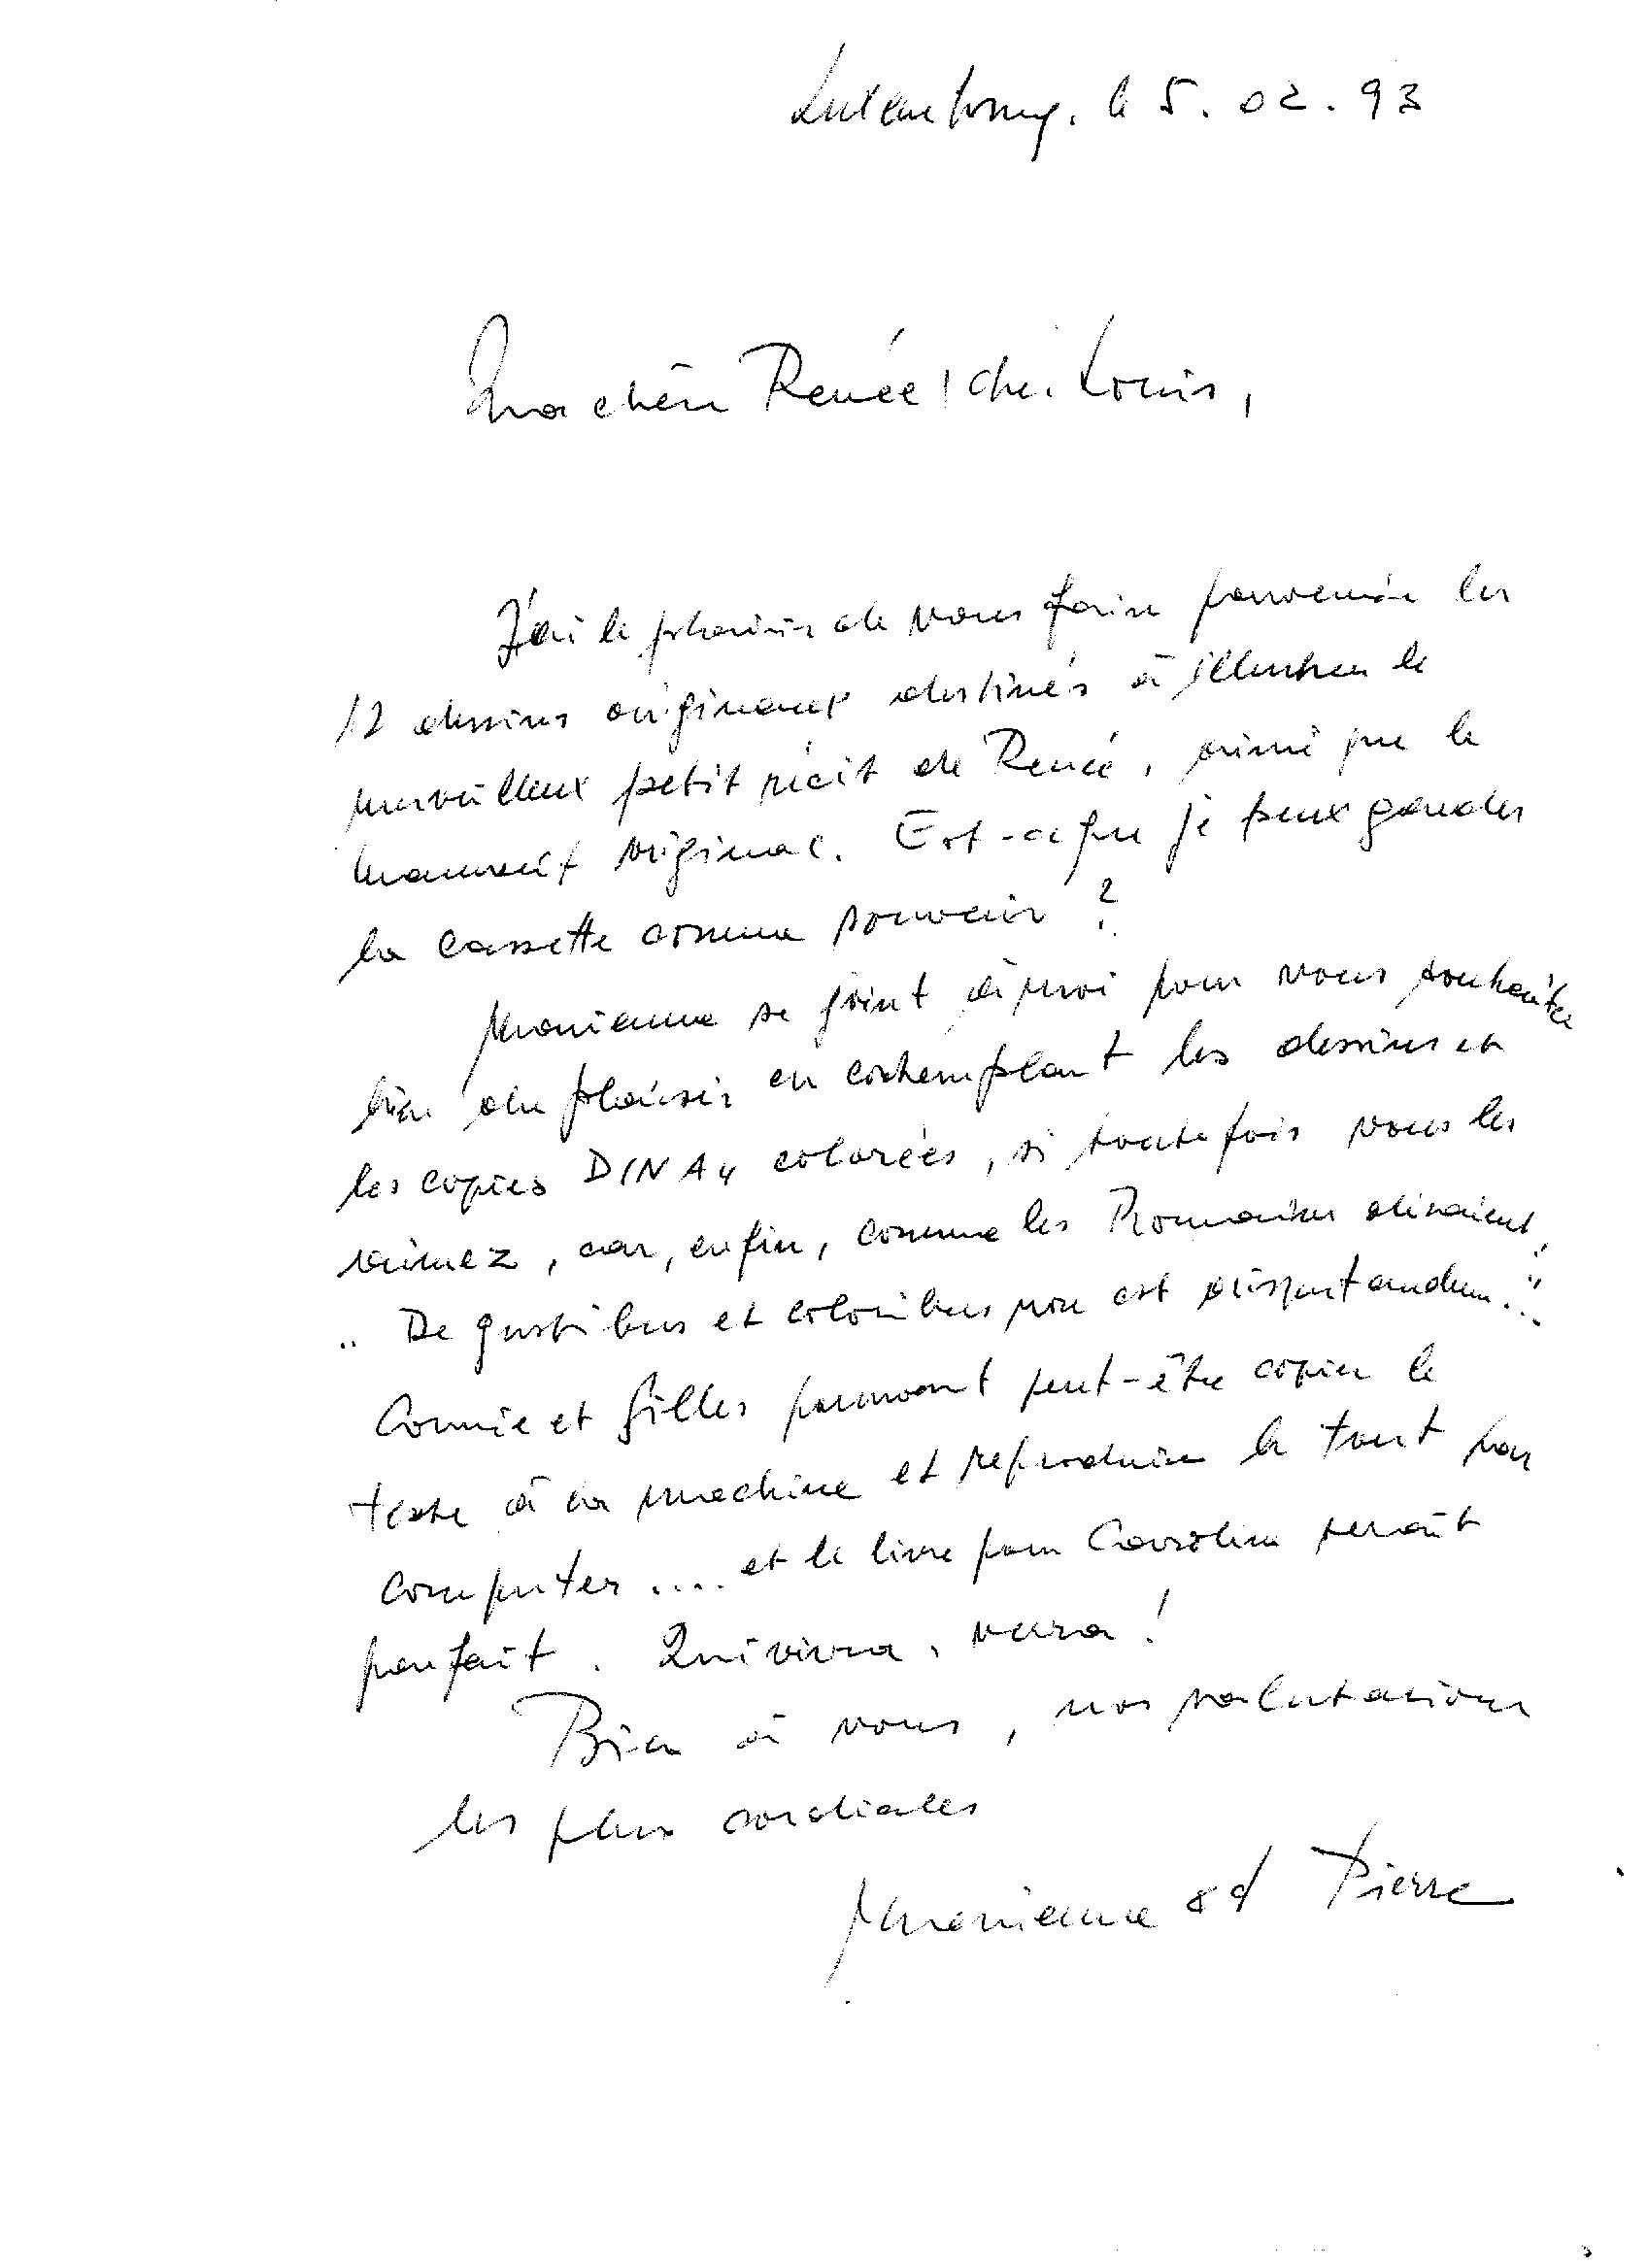 Luxembourg, le 5.02.93
Ma chère Renée, cher Louis,
J'ai le plaisir de vous faire parvenir les
12 dessins originaux destinés à illustrer le
merveilleux petit récit de Renée, ainsi que le
manuscrit original. Est-ce que je peux garder
la cassette comme souvenir ?
Marianne se joint à moi pour vous souhaiter
bien du plaisir en contemplant les dessins et
les copies DIN A4 colorées, si toutefois vous les
aimez, car, enfin, comme les Romains disaient:
„De gustibus et coloribus non est disputandum."
Connie et Gilles pourront peut-être copier le
texte à la machine et reproduire le tout par
computer .... et le livre pour Caroline serait
parfait. Qui vivra, verra!
Bien à vous, nos salutations
les plus cordiales
Marianne et Pierre